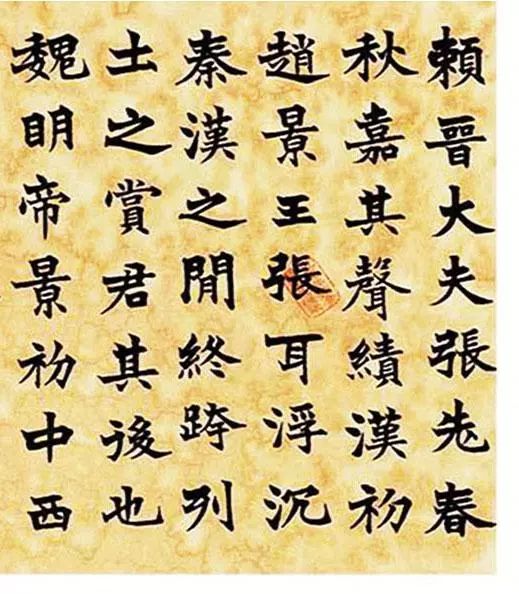 頼晉大夫張老春
秋嘉其聲績漢初
趙景王張耳浮沉
秦漢之間終跨列
土之賞君其後也
魏明帝景初中西